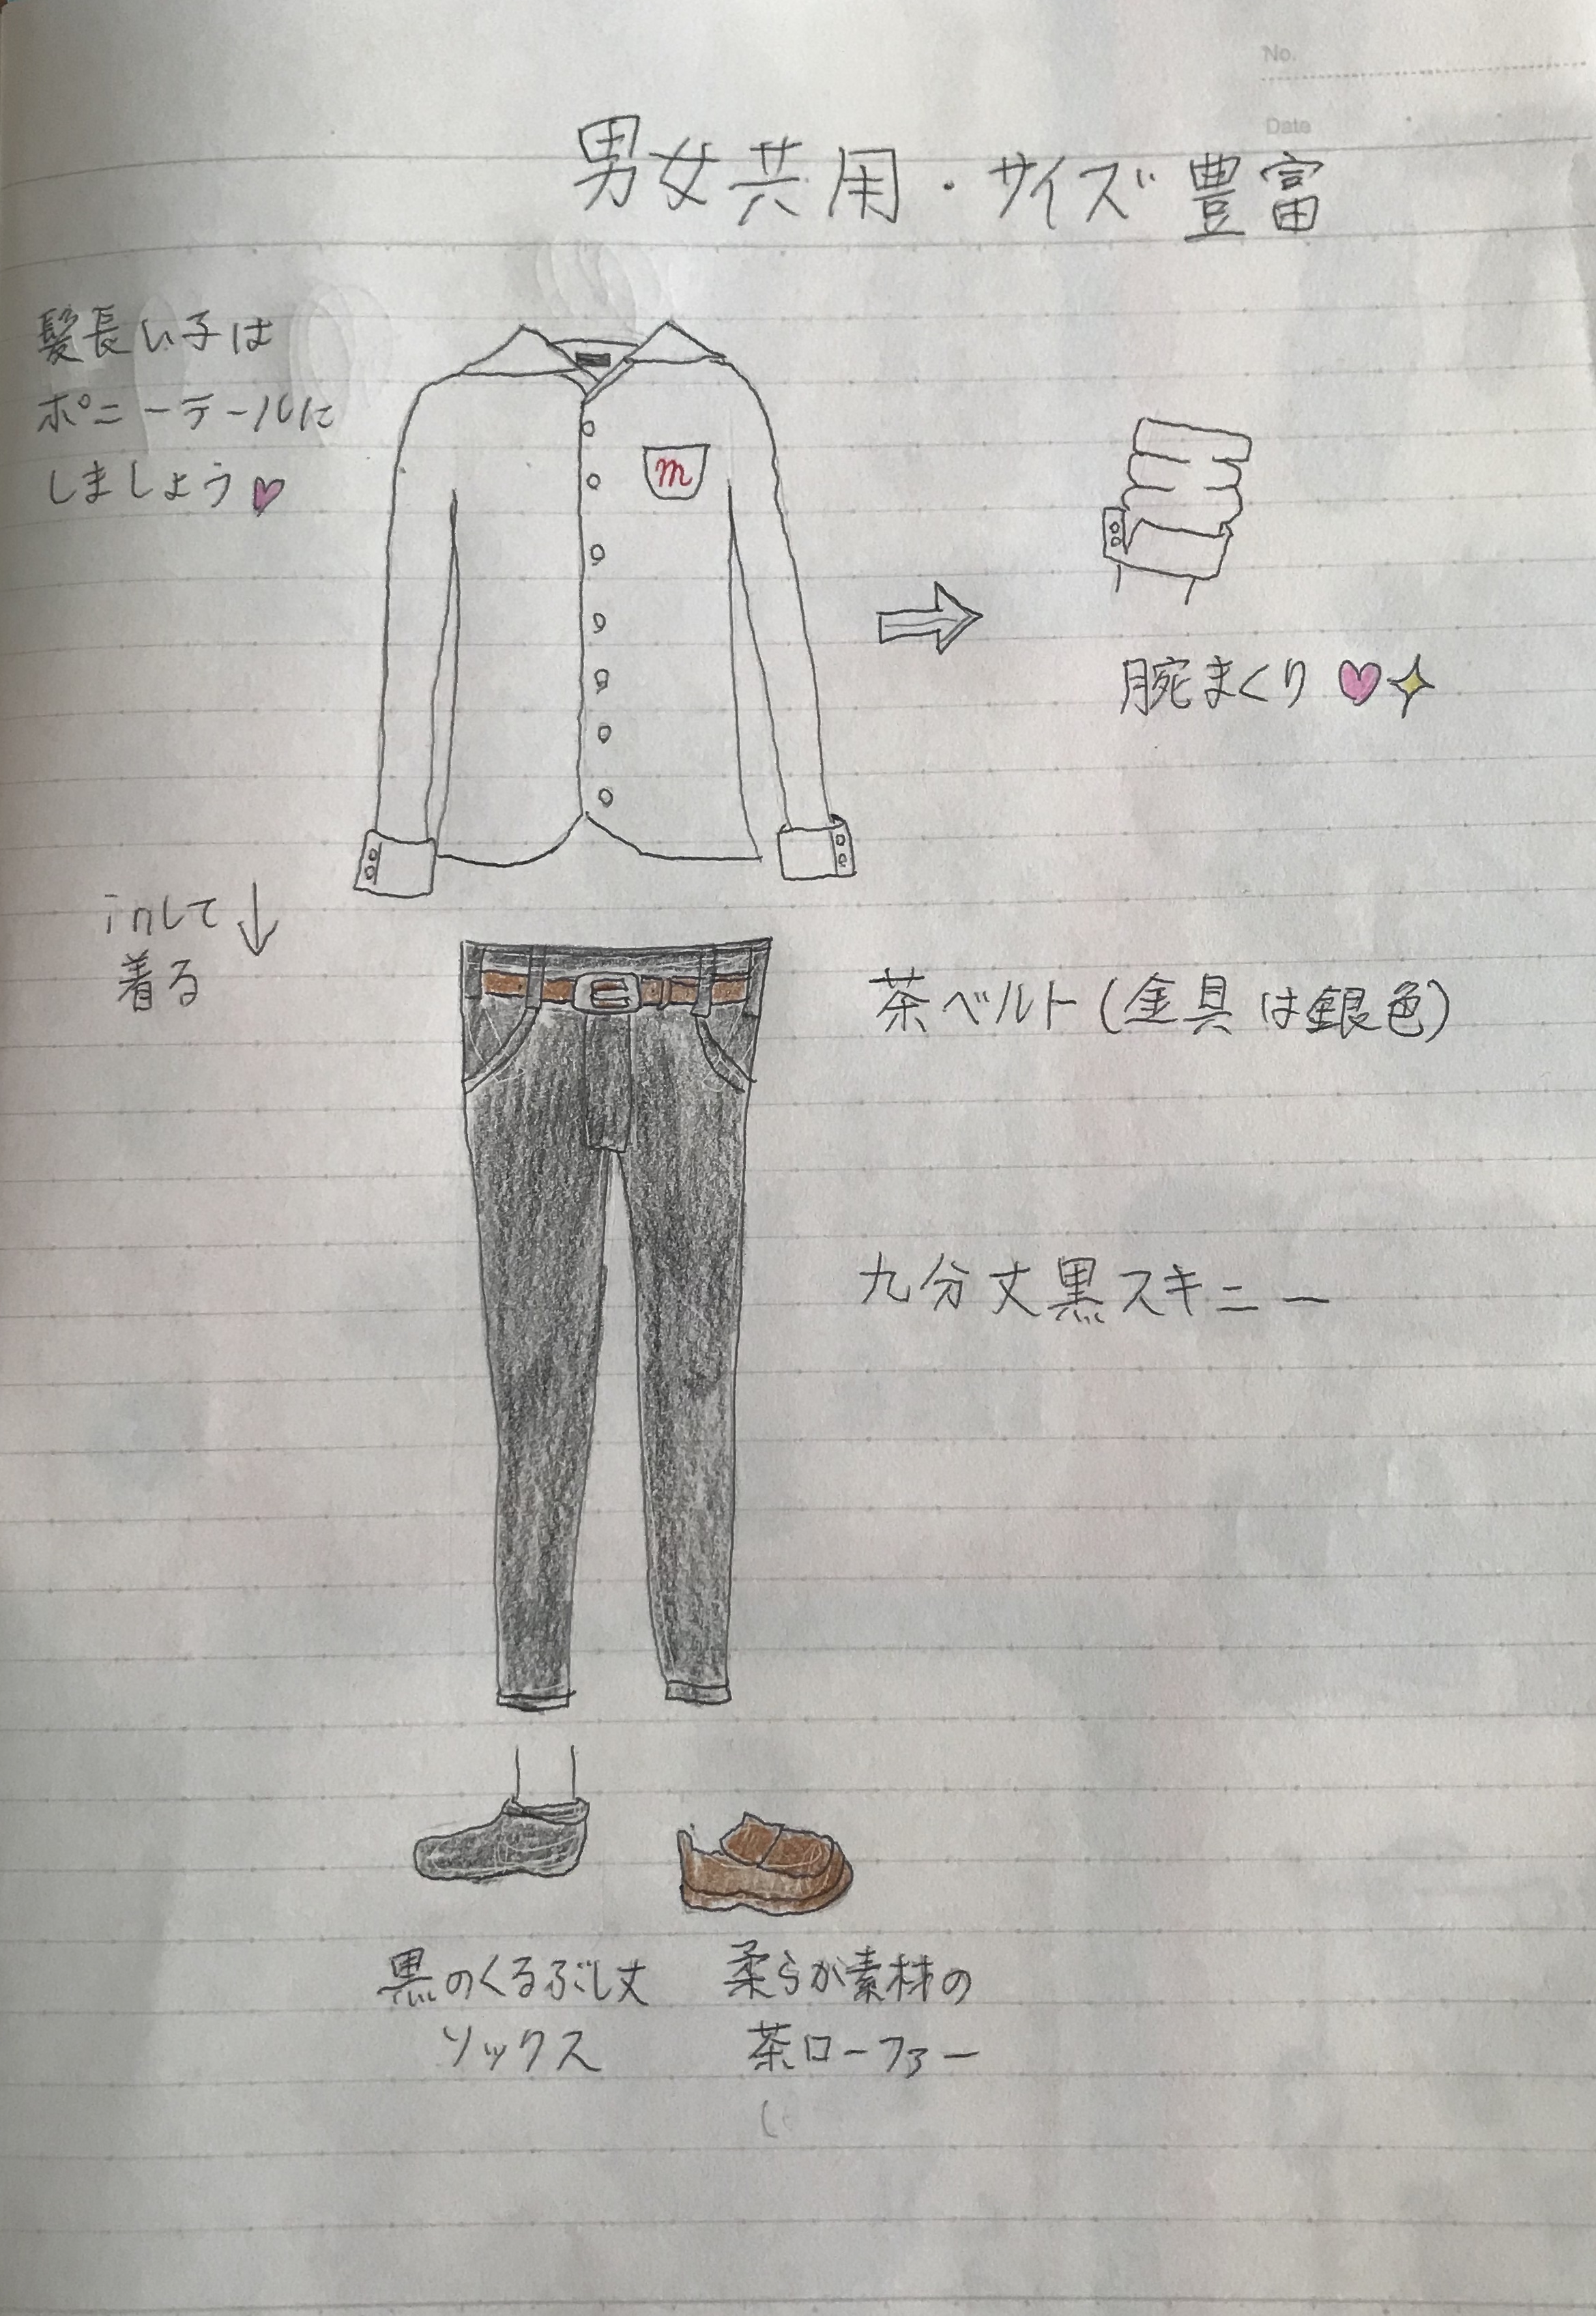 No.
Date
男女共用・サイズ豊富
髪長い子は
ポニーテールに
しましょう♡
m
腕まくり♡✧
inして↓
着る
茶ベルト(金具は銀色)
九分丈黒スキニー
黒のくるぶし丈
ソックス
柔らか素材の
茶ローファー